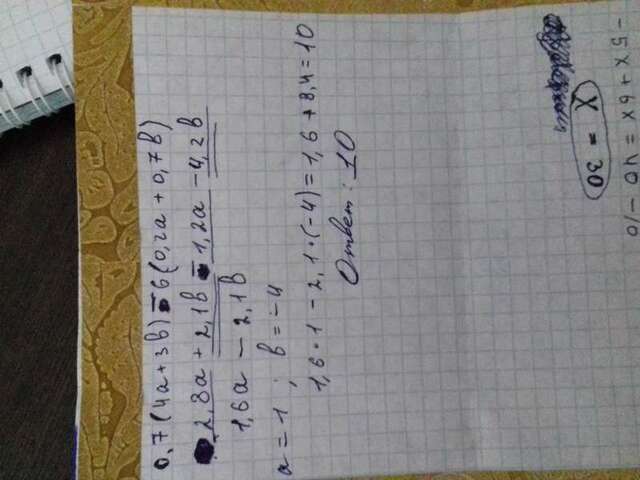 0,7(4a+3b)-6(0,2a+0,7b)
2,8a+2,1b-1,2a-4,2b
1,6a-2,1b
a=1; b=-4
1,6·1-2,1·(-4)=1,6+8,4=10
Ответ: 10
X = 30
-5x+6x=40-10